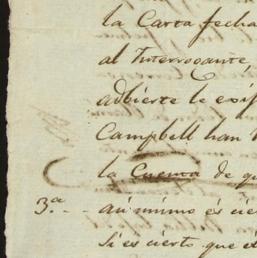 la Carta fecha
al Interrogante,
adbierte le exis
Campbell han
la Cuenta de q
3.a - aú mimo és cie
Si es cierto que é